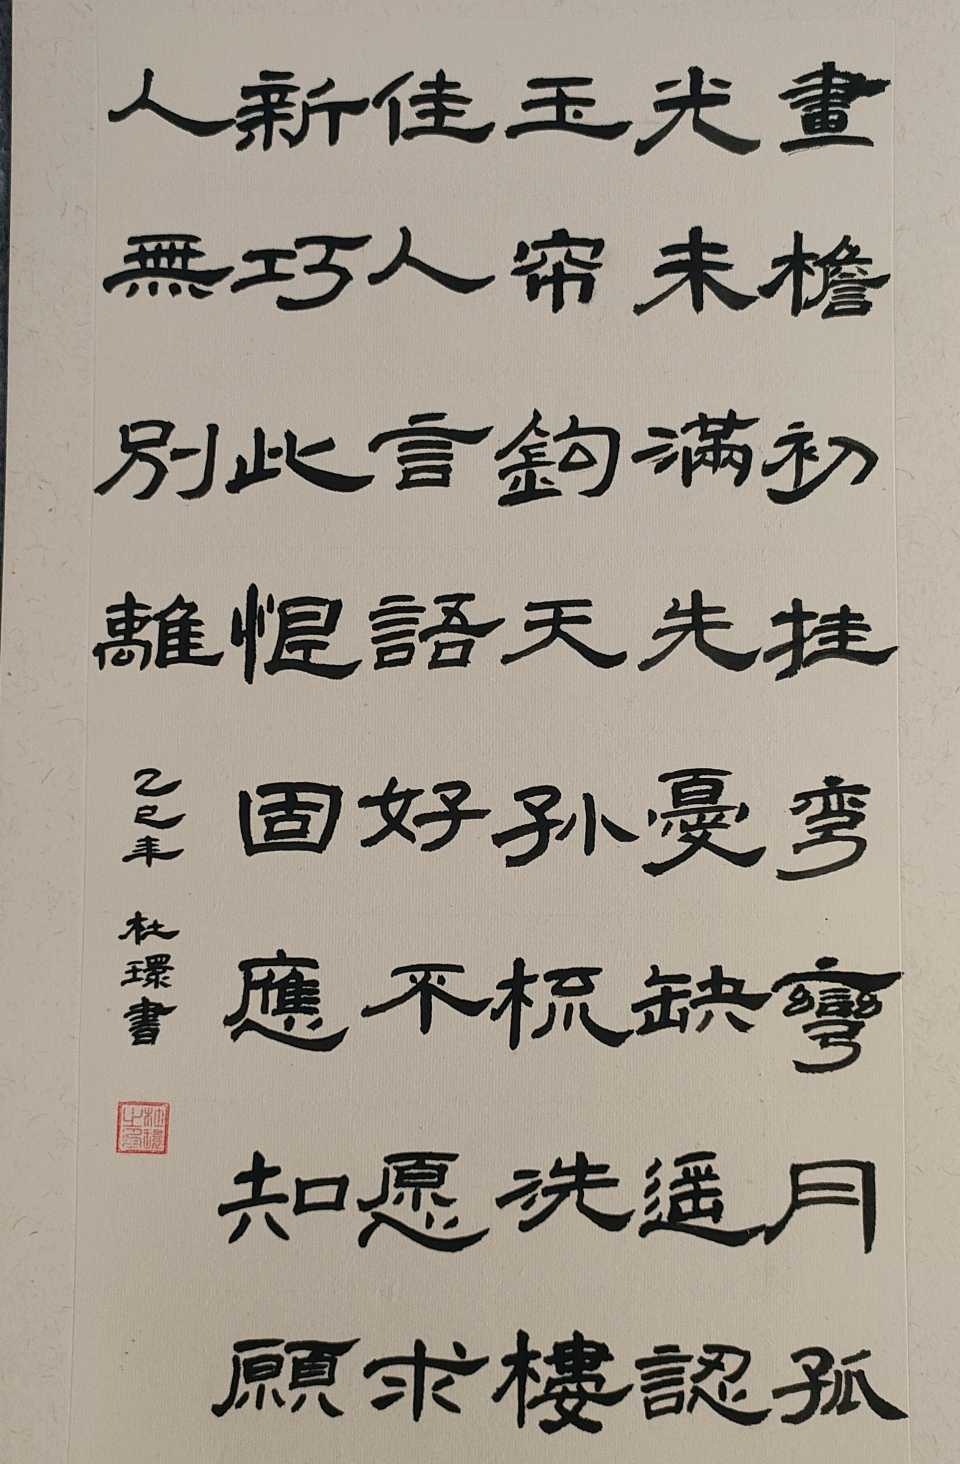 畫檐初挂弯彎月孤
光未滿先憂缺遥認
玉帘鉤天孙梳洗樓
佳人言語好不愿求
新巧此恨固應知願
人無別離
乙巳年 杜環書